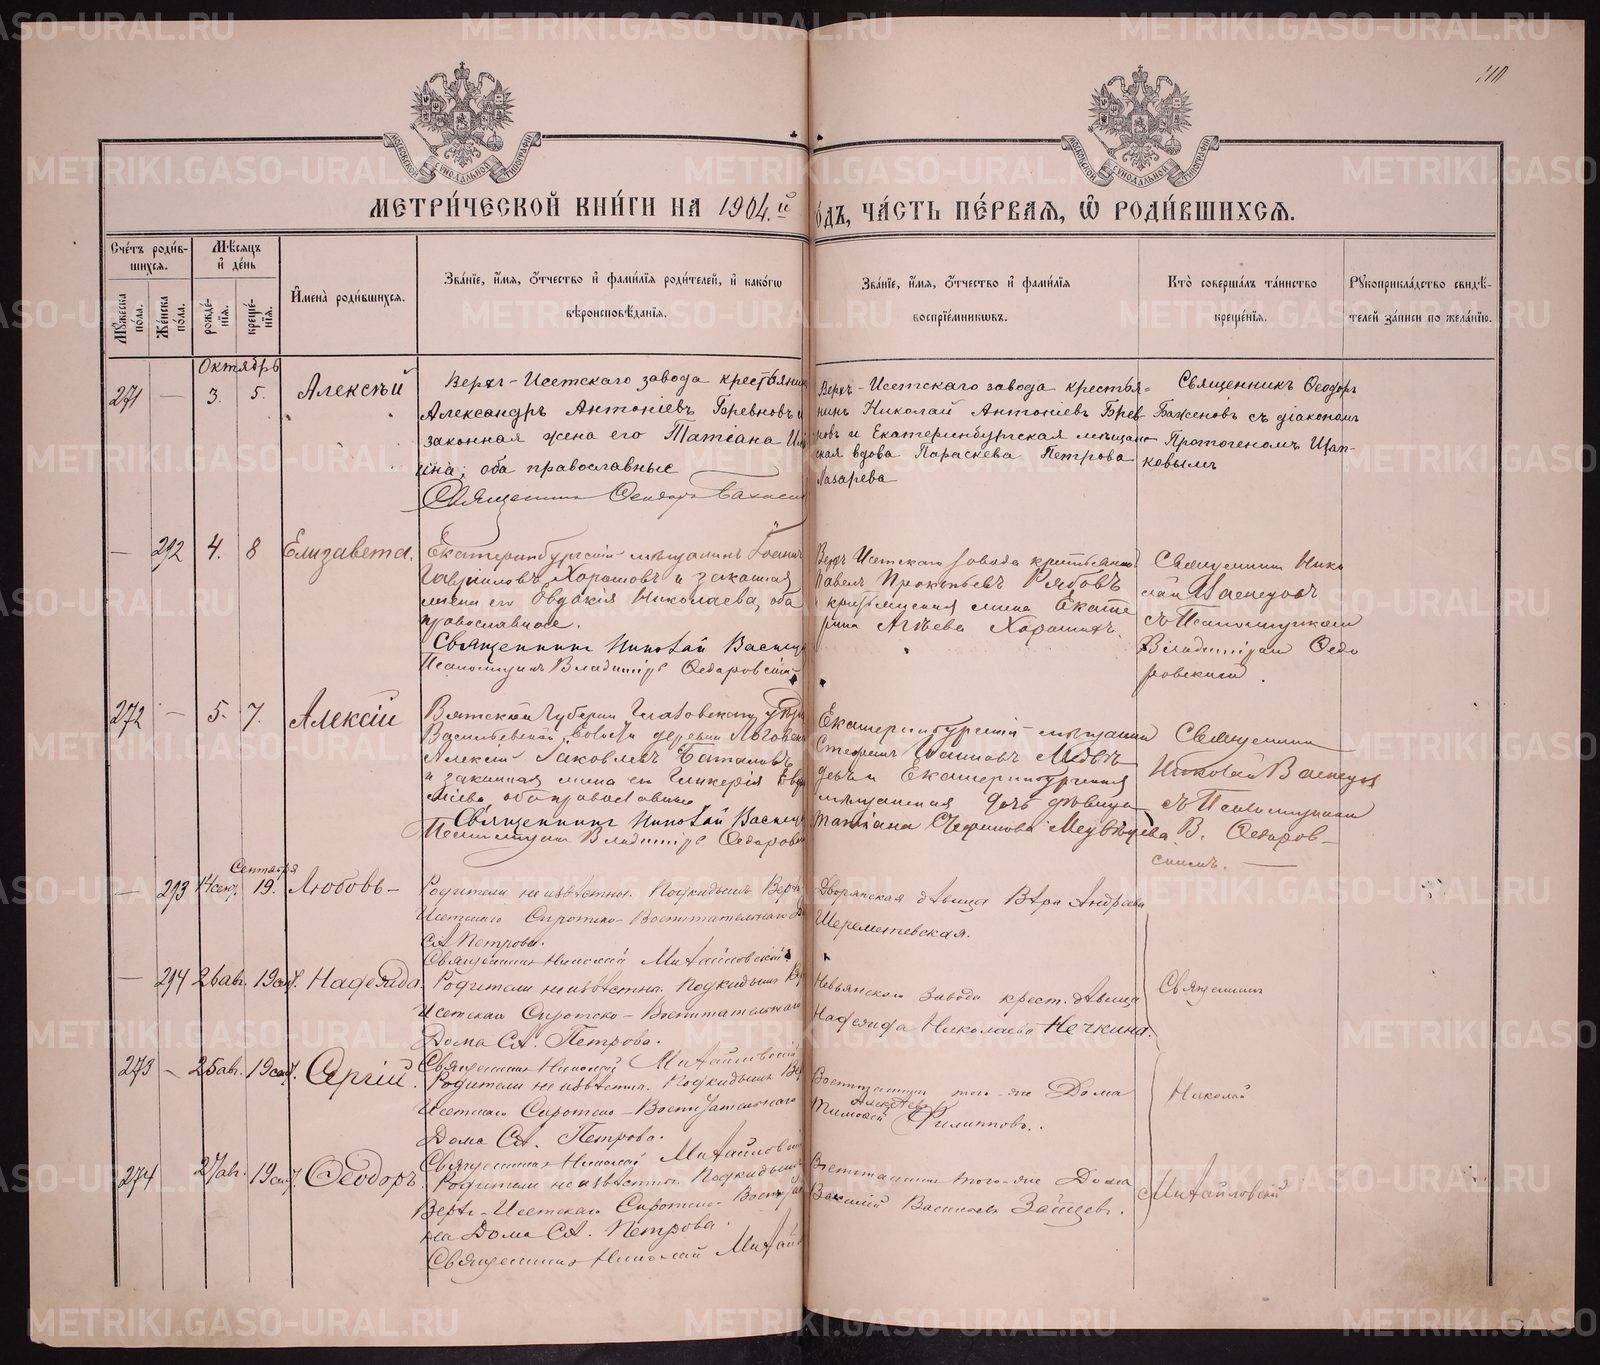 METRIKI.GASO-URAL.RU
МОСКОВСКОЙ СѴНОДАЛЬНОЙ ТИПОГРАФІИ
МЕТРИ́ЧЕСКОЙ КНИ́ГИ НА 1904.й
ГО́ДЪ, ЧА́СТЬ ПЕ́РВАЯ, Ѽ РОДИ́ВШИХСЯ.
Сче́тъ роди́в-шихся.
Мꙋ́жеска по́ла.
Же́нска по́ла.
Мѣ́сяцъ и де́нь
рожде́-нїя.
креще́-нїя.
И҆мена̀ роди́вшихся.
Зва́нїе, и҆́мя, ѻ҆́тчество и҆ фами́лїя роди́телей, и҆ како́гѡ
вѣроисповѣ́данїя.
Зва́нїе, и҆́мя, ѻ҆́тчество и҆ фами́лїя
воспрїе́мникѡвъ.
Кто̀ соверша́лъ та́инство
креще́нїя.
Рꙋкоприкла́дство свидѣ́-
телей за́писи по жела́нїю.
Октябрь
271 — 3. 5. Алексѣй
Верхъ-Исетскаго завода крестьянинъ
Александръ Антоніевъ Горевновъ и
законная жена его Татіана
оба православные
Священникъ Ѳеодоръ
Верхъ-Исетскаго завода крестья-
нинъ Николай Антоніевъ
и Екатеринбургская мѣщан-
ская вдова Параскева Петрова
Лазарева
Священникъ Ѳеодоръ
Баженовъ съ діакономъ
Протогеномъ Цап-
ковымъ
— 292 4. 8 Елизавета.
Екатеринбургскій мѣщанинъ Іоаннъ
Гавріиловъ Хорошовъ и законная
жена его Евдокія Николаева, оба
православные.
Священникъ Николай
Псаломщикъ Владиміръ Ѳедоровскій
Верхъ Исетскаго завода крестьянинъ
Павелъ Прокопьевъ Рябовъ
и крестьянская жена Екате
рина Хорошихъ.
Священникъ Нико
лай Васнецовъ
съ Псаломщикомъ
Владиміромъ Ѳедо
ровскимъ.
272 — 5. 7. Алексій
Вятской Губерніи Глазовскаго уѣзда
волости деревни
Алексій Іаковлевъ Баталовъ
и законная жена его Гликерія
оба православные
Священникъ Николай
Псаломщикъ Владиміръ Ѳедоров
Екатеринбургскій мѣщанинъ
Стефанъ Іоанновъ Медвѣ
девъ и Екатеринбургская
мѣщанская дочь дѣвица
Татіана Стефанова Медвѣдева
Священникъ
Николай Васнецов
съ Псаломщикомъ
В. Ѳедоров-
скимъ. —
Сентября
— 293 14 сент. 19. Любовь —
Родители неизвѣстны. Подкидышъ Верхъ
Исетскаго Сиротско-Воспитательнаго
Петрова.
Священникъ Николай Михайловскій.
Дворянская дѣвица Вѣра Андреева
Шереметевская.
— 294 26 авг. 19 сент. Надежда.
Родители неизвѣстны. Подкидышъ
Исетскаго Сиротско-Воспитательнаго
Дома Петрова.
Священникъ Николай Михайловскій
Невьянскаго Завода крест. дѣвица
Надежда Николаева Нечкина.
Священникъ
273 — 25 авг. 19 сент. Сергій.
Родители неизвѣстны. Подкидышъ
Исетскаго Сиротско-Воспитательнаго
Дома Петрова.
Священникъ Николай Михайловскій
того-же Дома
Алексѣевъ
Тимофей Филипповъ.
Николай
274 27 авг. 19 сент. Ѳеодоръ.
Родители неизвѣстны. Подкидышъ
Верхъ-Исетскаго Сиротско-
Дома Петрова.
Священникъ Николай
того-же Дома
Василій Васильевъ Зайцевъ.
Михайловскій